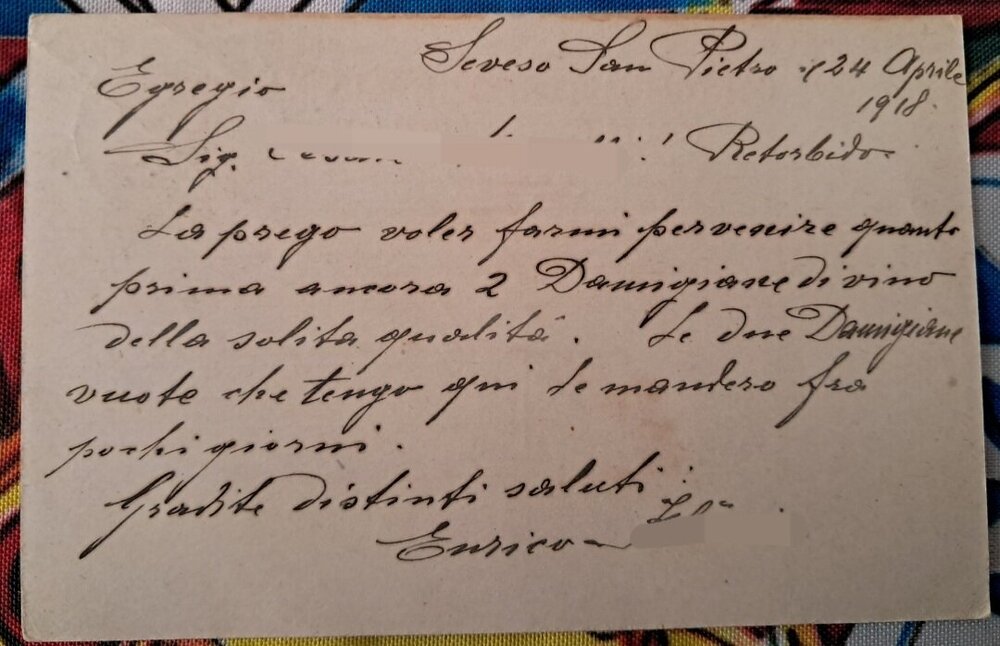 Seveso San Pietro il 24 Aprile
1918.
Egregio
Sig. Retorbido.
La prego voler farmi pervenire quanto
prima ancora 2 Damigiane di vino
della solita qualità. Le due Damigiane
vuote che tengo qui le manderò fra
pochi giorni.
Gradite distinti saluti
Enrico